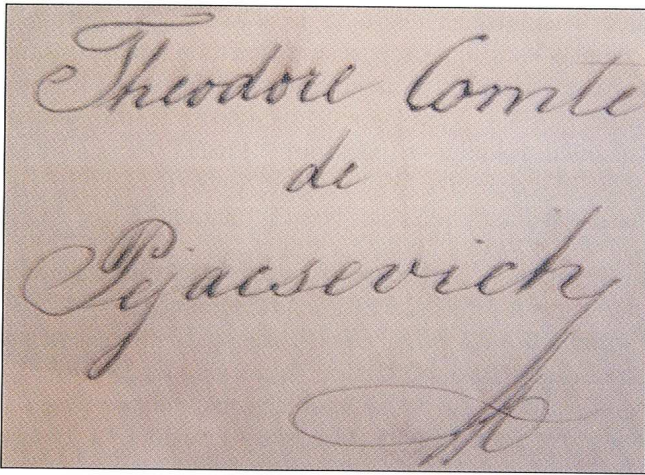 Theodore Comte
de
Pejacsevich